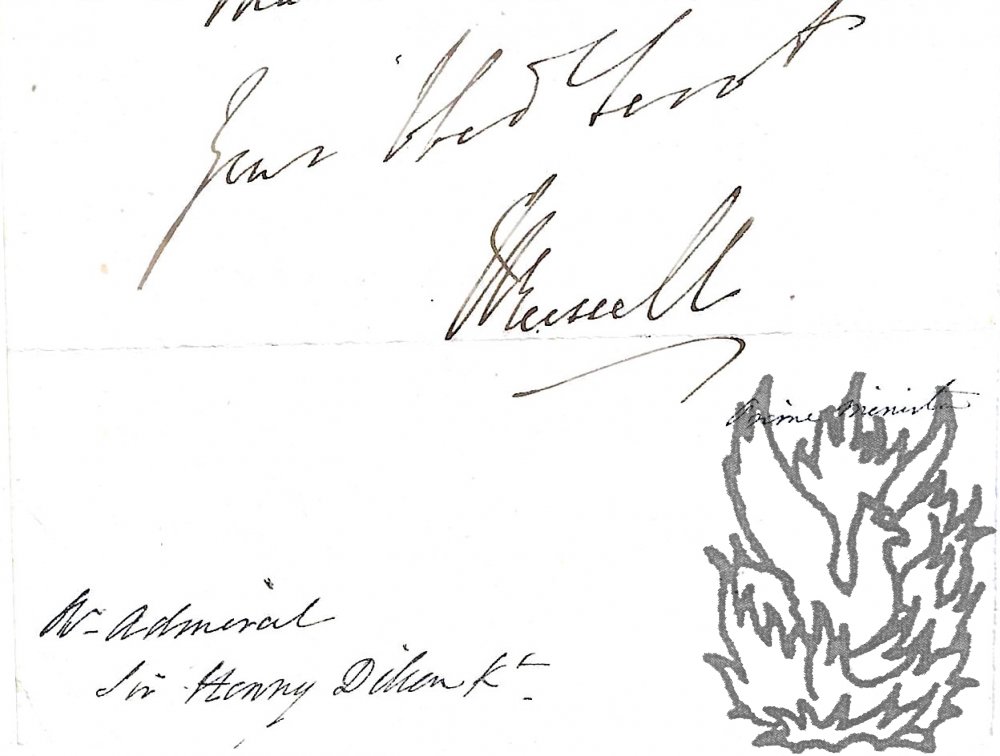 Your Obed Servt
Russell
Prime Minister
Rr Admiral
Sir Henry Dillon Kt